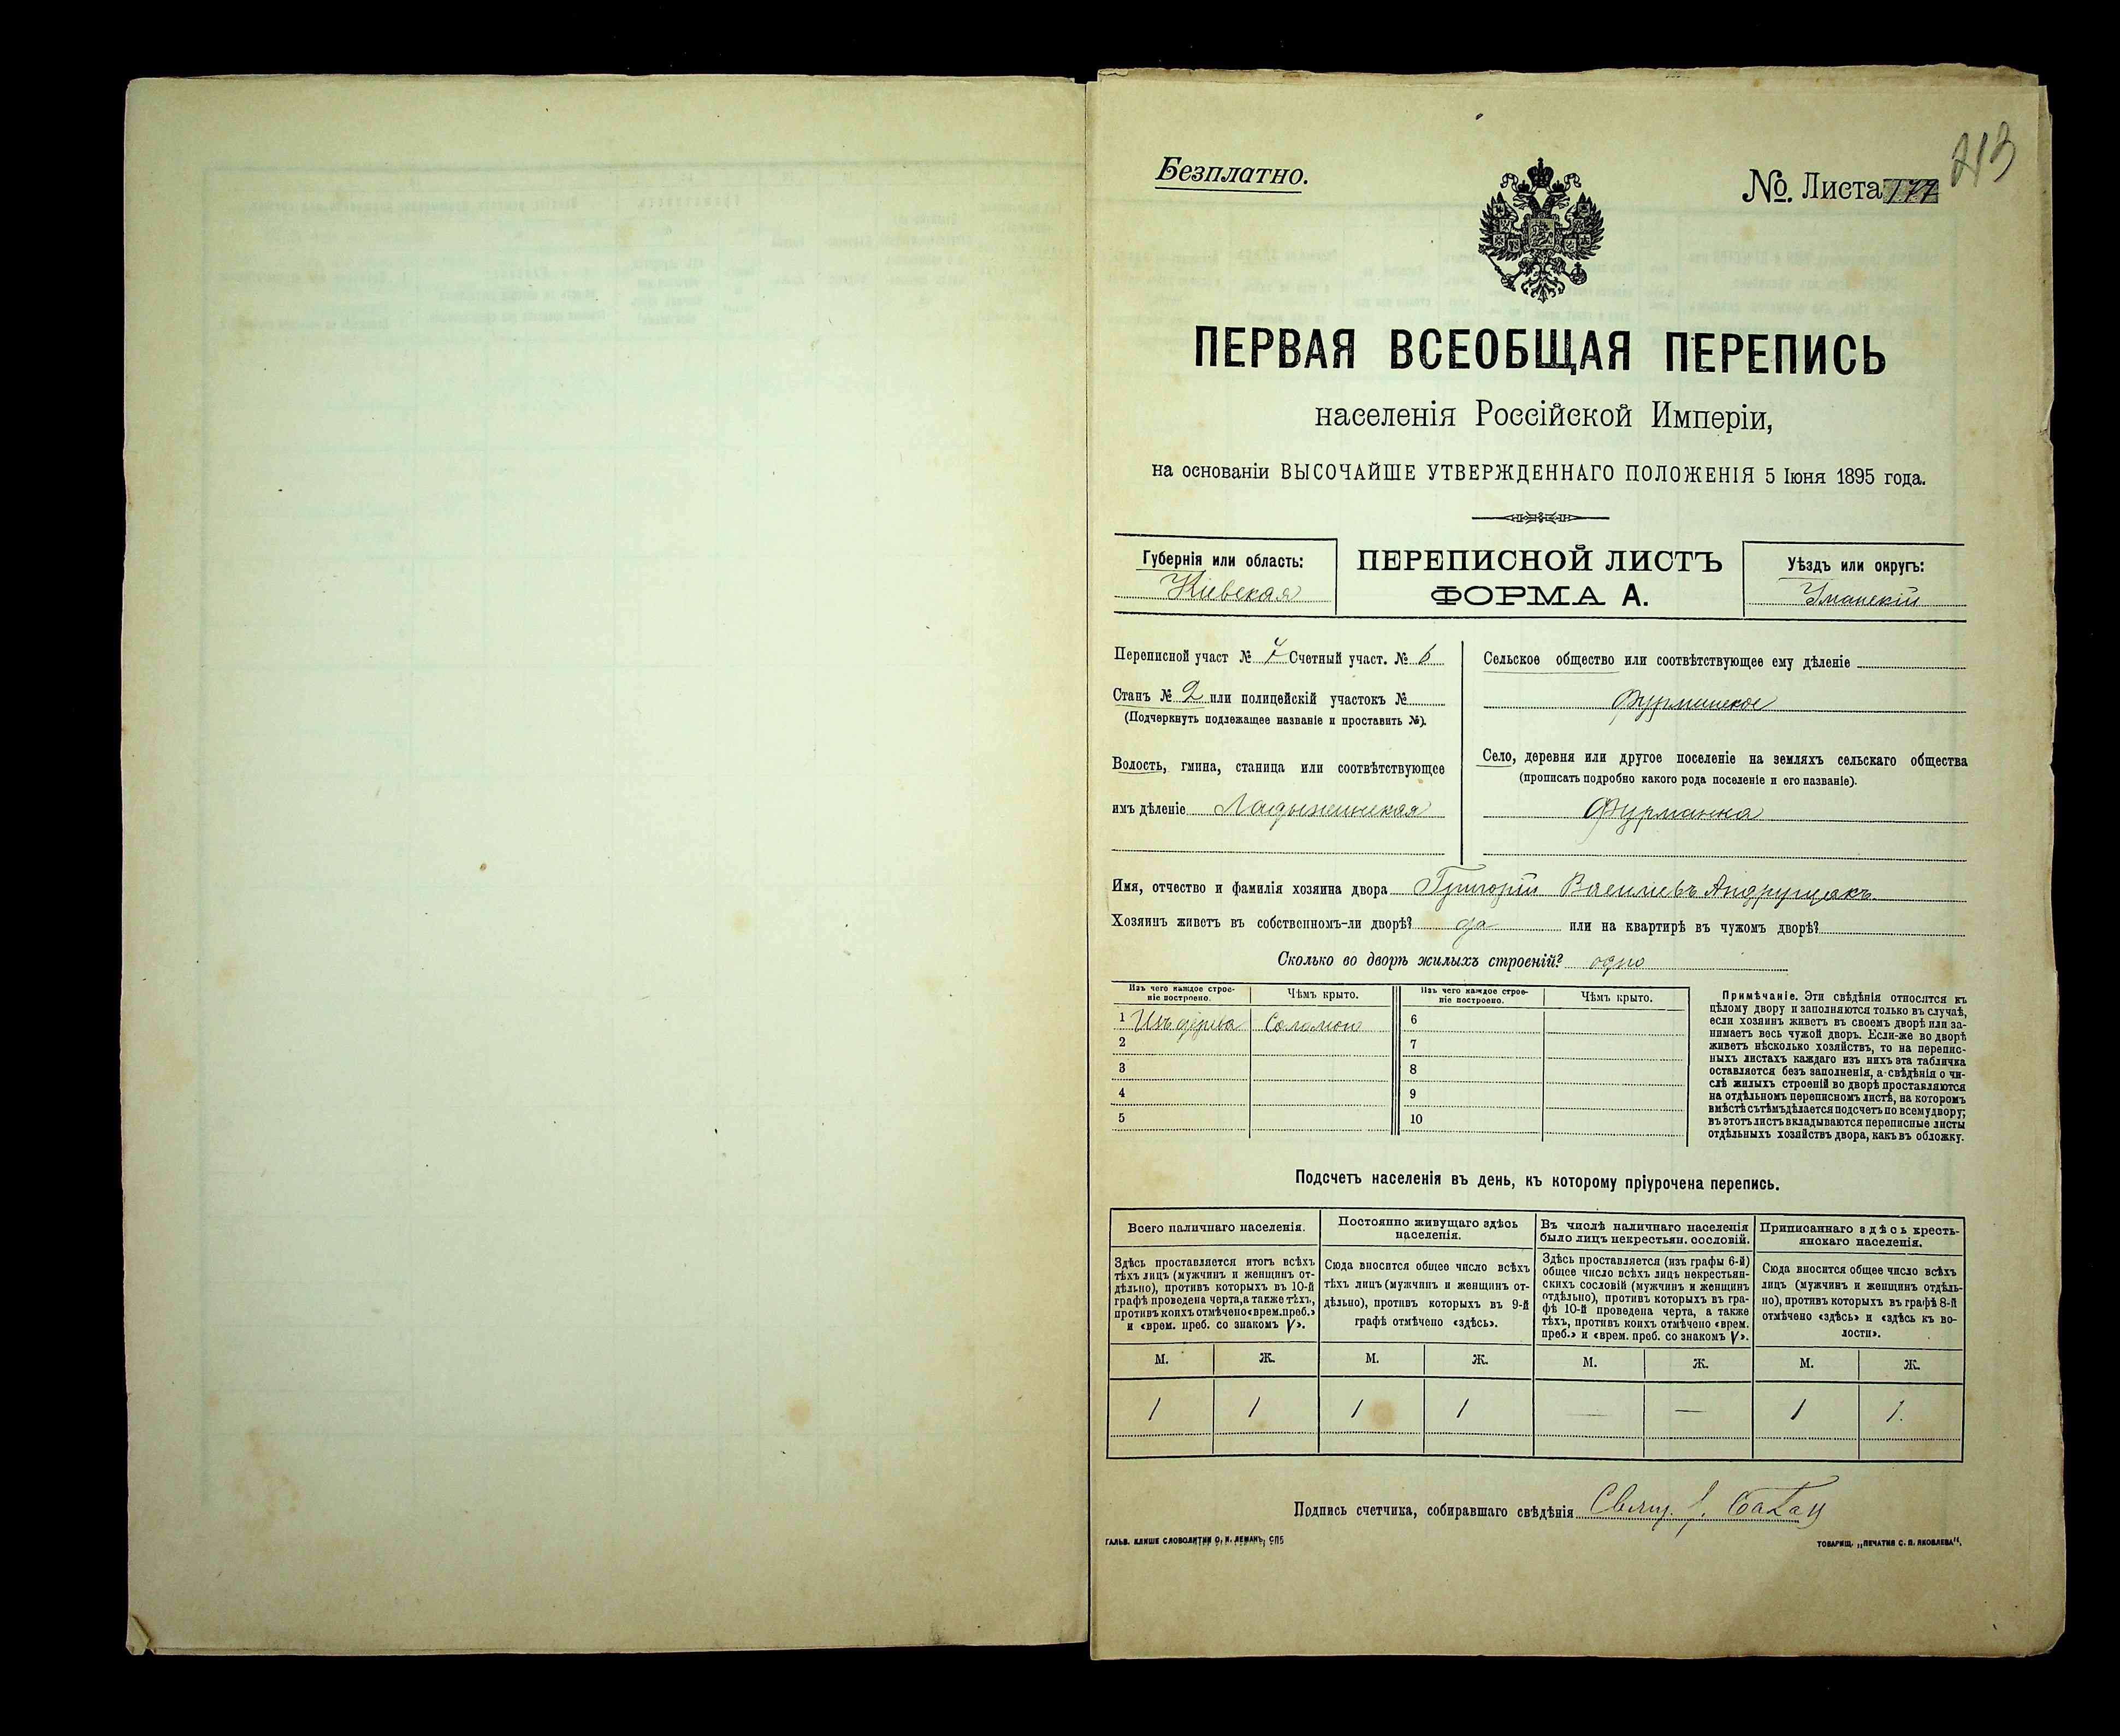 213
Безплатно.
№. Листа 177
ПЕРВАЯ ВСЕОБЩАЯ ПЕРЕПИСЬ
населенія Россійской Имперіи,
на основаніи ВЫСОЧАЙШЕ УТВЕРЖДЕННАГО ПОЛОЖЕНІЯ 5 Іюня 1895 года.
Губернія или область:
Кіевская
ПЕРЕПИСНОЙ ЛИСТЪ
ФОРМА А.
Уѣздъ или округъ:
Уманскій
Переписной участ № 7 Счетный участ. № 6
Станъ № 2 или полицейскій участокъ №
(Подчеркнуть подлежащее названіе и проставить №).
Волость, гмина, станица или соотвѣтствующее
имъ дѣленіе Ладыжинская
Сельское общество или соотвѣтствующее ему дѣленіе
Фурманское
Село, деревня или другое поселеніе на земляхъ сельскаго общества
(прописать подробно какого рода поселеніе и его названіе).
Фурманка
Имя, отчество и фамилія хозяина двора Григорій Васильевъ Андрущакъ
Хозяинъ живетъ въ собственномъ-ли дворѣ? да или на квартирѣ въ чужомъ дворѣ?
Сколько во дворѣ жилыхъ строеній? одно
Изъ чего каждое строе-
ніе построено.
Чѣмъ крыто.
Изъ чего каждое строе-
ніе построено.
Чѣмъ крыто.
1 Изъ дерева Соломою 6
2 7
3 8
4 9
5 10
Примѣчаніе. Эти свѣдѣнія относятся къ
цѣлому двору и заполняются только въ случаѣ,
если хозяинъ живетъ въ своемъ дворѣ или за-
нимаетъ весь чужой дворъ. Если-же во дворѣ
живетъ нѣсколько хозяйствъ, то на перепис-
ныхъ листахъ каждаго изъ нихъ эта табличка
оставляется безъ заполненія, а свѣдѣнія о чи-
слѣ жилыхъ строеній во дворѣ проставляются
на отдѣльномъ переписномъ листѣ, на которомъ
вмѣстѣ съ тѣмъ дѣлается подсчетъ по всему двору;
въ этотъ листъ вкладываются переписные листы
отдѣльныхъ хозяйствъ двора, какъ въ обложку.
Подсчетъ населенія въ день, къ которому пріурочена перепись.
Всего наличнаго населенія.
Здѣсь проставляется итогъ всѣхъ
тѣхъ лицъ (мужчинъ и женщинъ от-
дѣльно), противъ которыхъ въ 10-й
графѣ проведена черта, а также тѣхъ,
противъ коихъ отмѣчено «врем. преб.»
и «врем. преб. со знакомъ V».
Постоянно живущаго здѣсь
населенія.
Сюда вносится общее число всѣхъ
тѣхъ лицъ (мужчинъ и женщинъ от-
дѣльно), противъ которыхъ въ 9-й
графѣ отмѣчено «здѣсь».
Въ числѣ наличнаго населенія
было лицъ некрестьян. сословій.
Здѣсь проставляется (изъ графы 6-й)
общее число всѣхъ лицъ некрестьян-
скихъ сословій (мужчинъ и женщинъ
отдѣльно), противъ которыхъ въ гра-
фѣ 10-й проведена черта, а также
тѣхъ, противъ коихъ отмѣчено «врем.
преб.» и «врем. преб. со знакомъ V».
Приписаннаго здѣсь кресть-
янскаго населенія.
Сюда вносится общее число всѣхъ
лицъ (мужчинъ и женщинъ отдѣль-
но), противъ которыхъ въ графѣ 8-й
отмѣчено «здѣсь» и «здѣсь къ во-
лости».
М. Ж. М. Ж. М. Ж. М. Ж.
1 1 1 1 — — 1 1.
Подпись счетчика, собиравшаго свѣдѣнія Свящ.
ГАЛЬВ. КЛИШЕ СЛОВОЛИТНИ О. И. ЛЕМАНЪ, СПБ
ТОВАРИЩ. „ПЕЧАТНЯ С. П. ЯКОВЛЕВА",